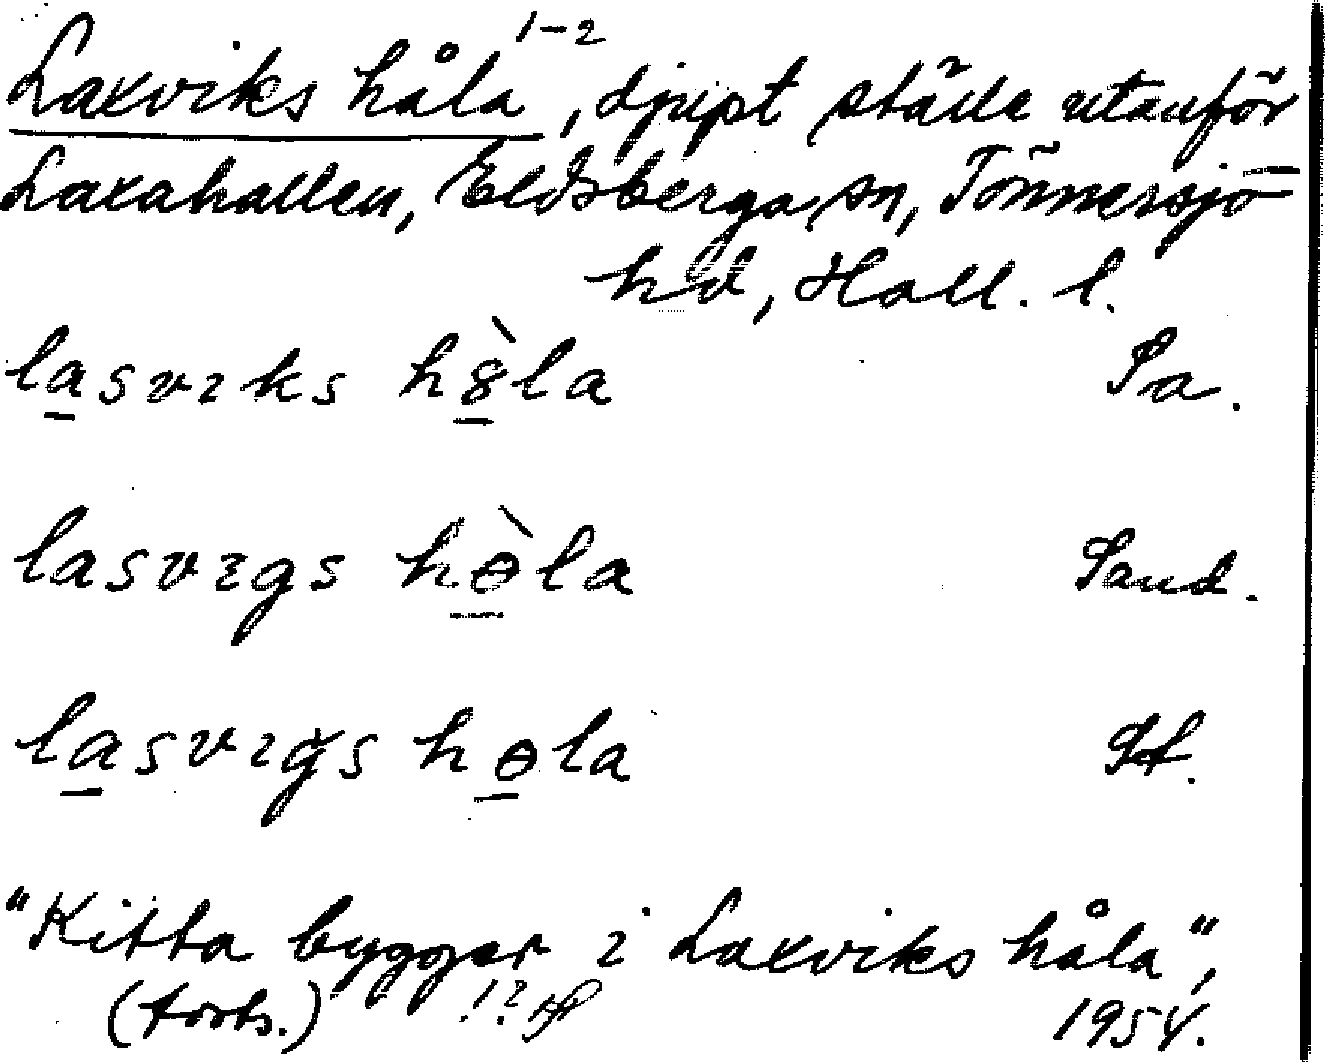 Laxviks håla 1-2, djupt ställe utanför
Laxahallen, Eldsberga sn, Tönnersjö
hd, Hall. l.
lasvıks hòla Sa.
lasvıgs hɵ̀la Sand.
lasvıgs hɵla St.
"Kitta bygger i Laxviks håla",
(forts.) !? 1954.